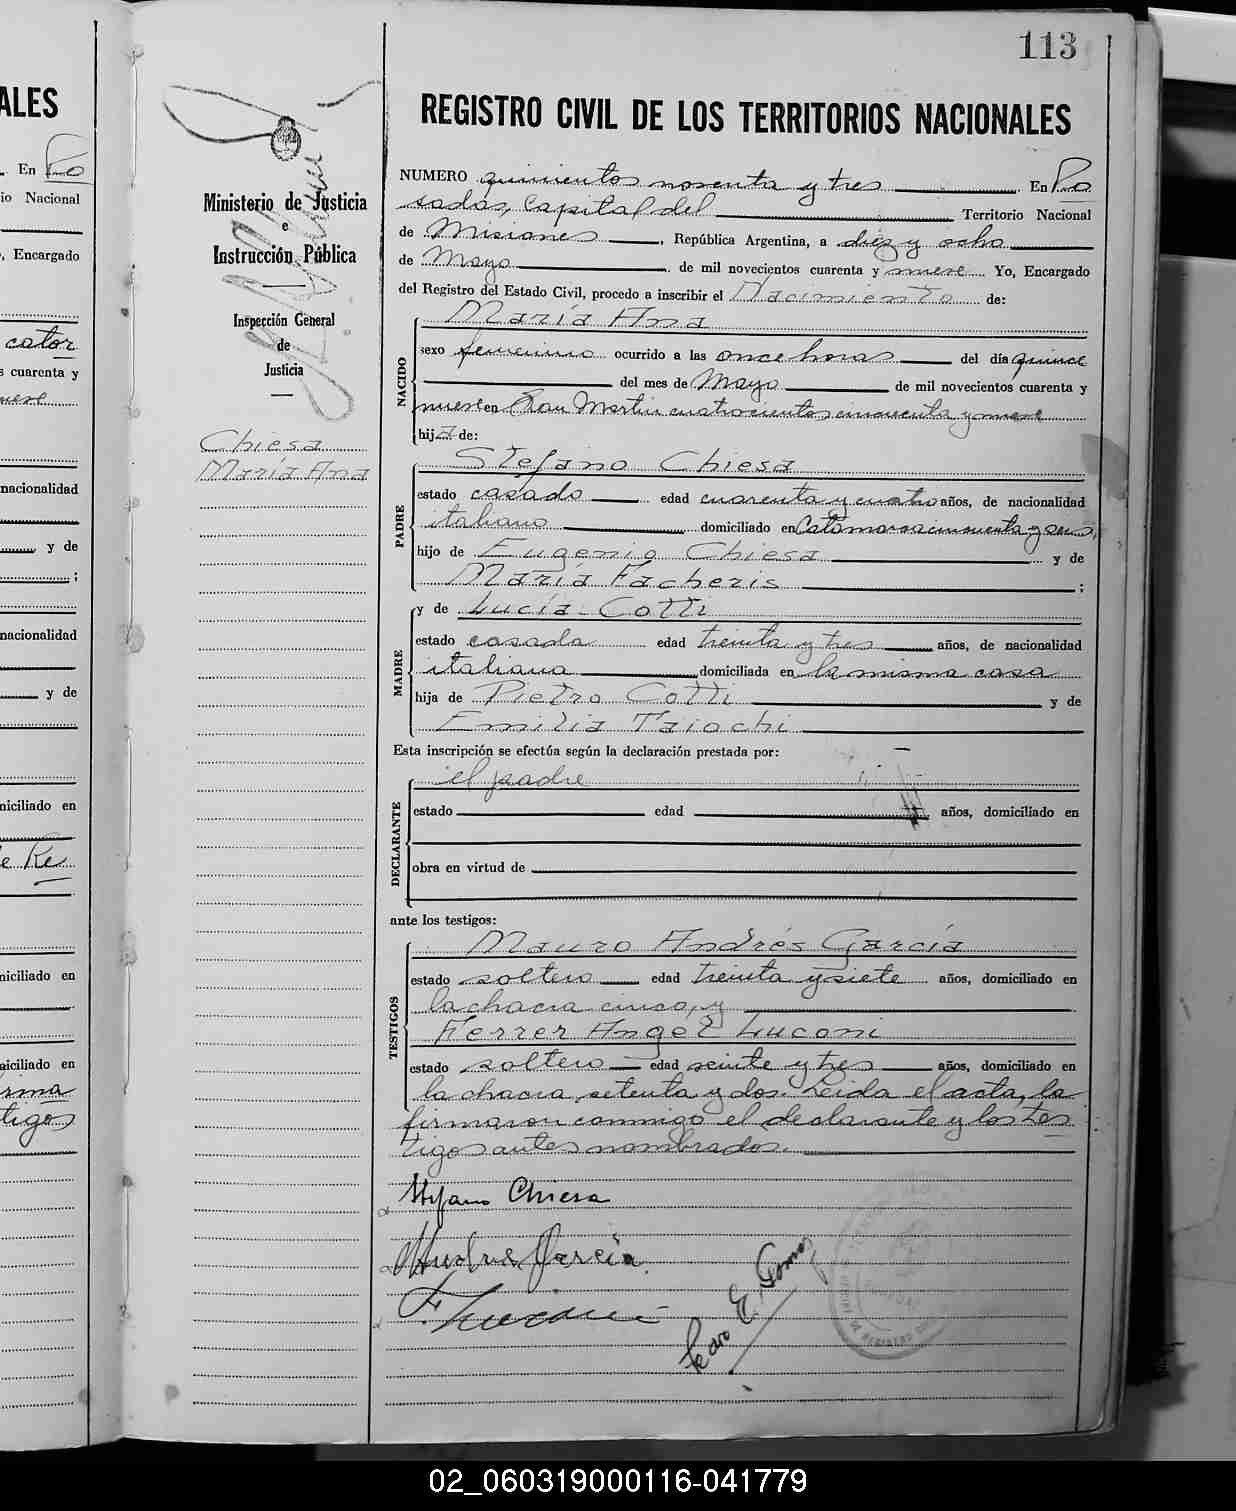 113
REGISTRO CIVIL DE LOS TERRITORIOS NACIONALES
Ministerio de Justicia
e
Instrucción Pública
Inspección General
de
Justicia
Chiesa
María Ana
NUMERO quinientos noventa y tres En Po
sadas, Capital del Territorio Nacional
de Misiones, República Argentina, a diez y ocho
de Mayo de mil novecientos cuarenta y nueve Yo, Encargado
del Registro del Estado Civil, procedo a inscribir el Nacimiento de:
NACIDO
María Ana
sexo femenino ocurrido a las once horas del día quince
del mes de Mayo de mil novecientos cuarenta y
nueve en San Martin cuatrocientos cincuenta y nueve
hija de:
PADRE
Stefano Chiesa
estado casado edad cuarenta y cuatro años, de nacionalidad
italiano domiciliado en Catamarca cincuenta y seis,
hijo de Eugenio Chiesa y de
María Facheris ;
MADRE
y de Lucía Cotti
estado casada edad treinta y tres años, de nacionalidad
italiana domiciliada en la misma casa
hija de Pietro Cotti y de
Emilia Taiochi
Esta inscripción se efectúa según la declaración prestada por:
DECLARANTE
el padre
estado edad años, domiciliado en
obra en virtud de
ante los testigos:
TESTIGOS
Mauro Andrés García
estado soltero edad treinta y siete años, domiciliado en
la chacra cinco, y
Ferrer Angel Luconi
estado soltero edad veinte y tres años, domiciliado en
la chacra setenta y dos. Leida el acta, la
firmaron conmigo el declarante y los tes
tigos antes nombrados.
Stefano Chiesa
Andres García
F. Luconi
Pedro E. Gomez
ALES
En Po
io Nacional
, Encargado
cator
s cuarenta y
nueve
nacionalidad
y de
;
nacionalidad
y de
miciliado en
de Re
miciliado en
miciliado en
irma
tigos
02_060319000116-041779